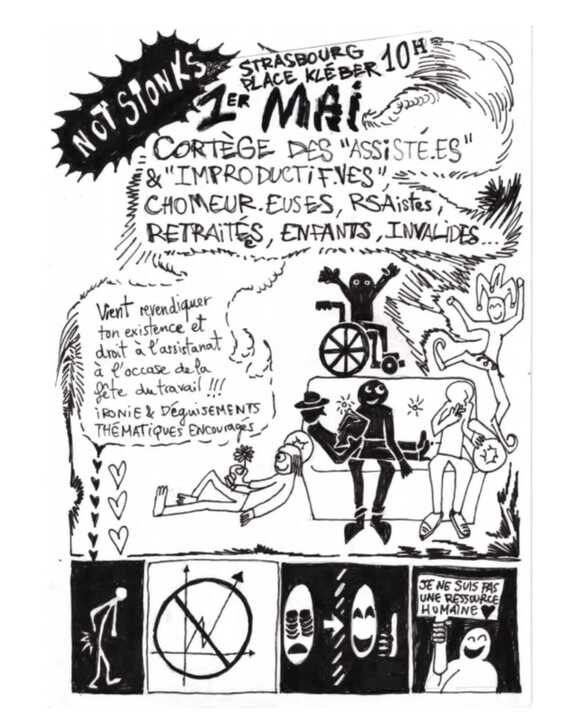 NOT STONKS
STRASBOURG
PLACE KLÉBER 10H
1ER MAI
CORTÈGE DES "ASSISTÉ.ES"
& "IMPRODUCTIF.VES",
CHOMEUR.EUSES, RSAistes,
RETRAITÉS, ENFANTS, INVALIDES...
Vient revendiquer
ton existence et
droit à l'assistanat
à l'occase de la
fête du travail !!!
IRONIE & DÉGUISEMENTS
THÉMATIQUES ENCOURAGES
JE NE SUIS PAS
UNE RESSOURCE
HUMAINE